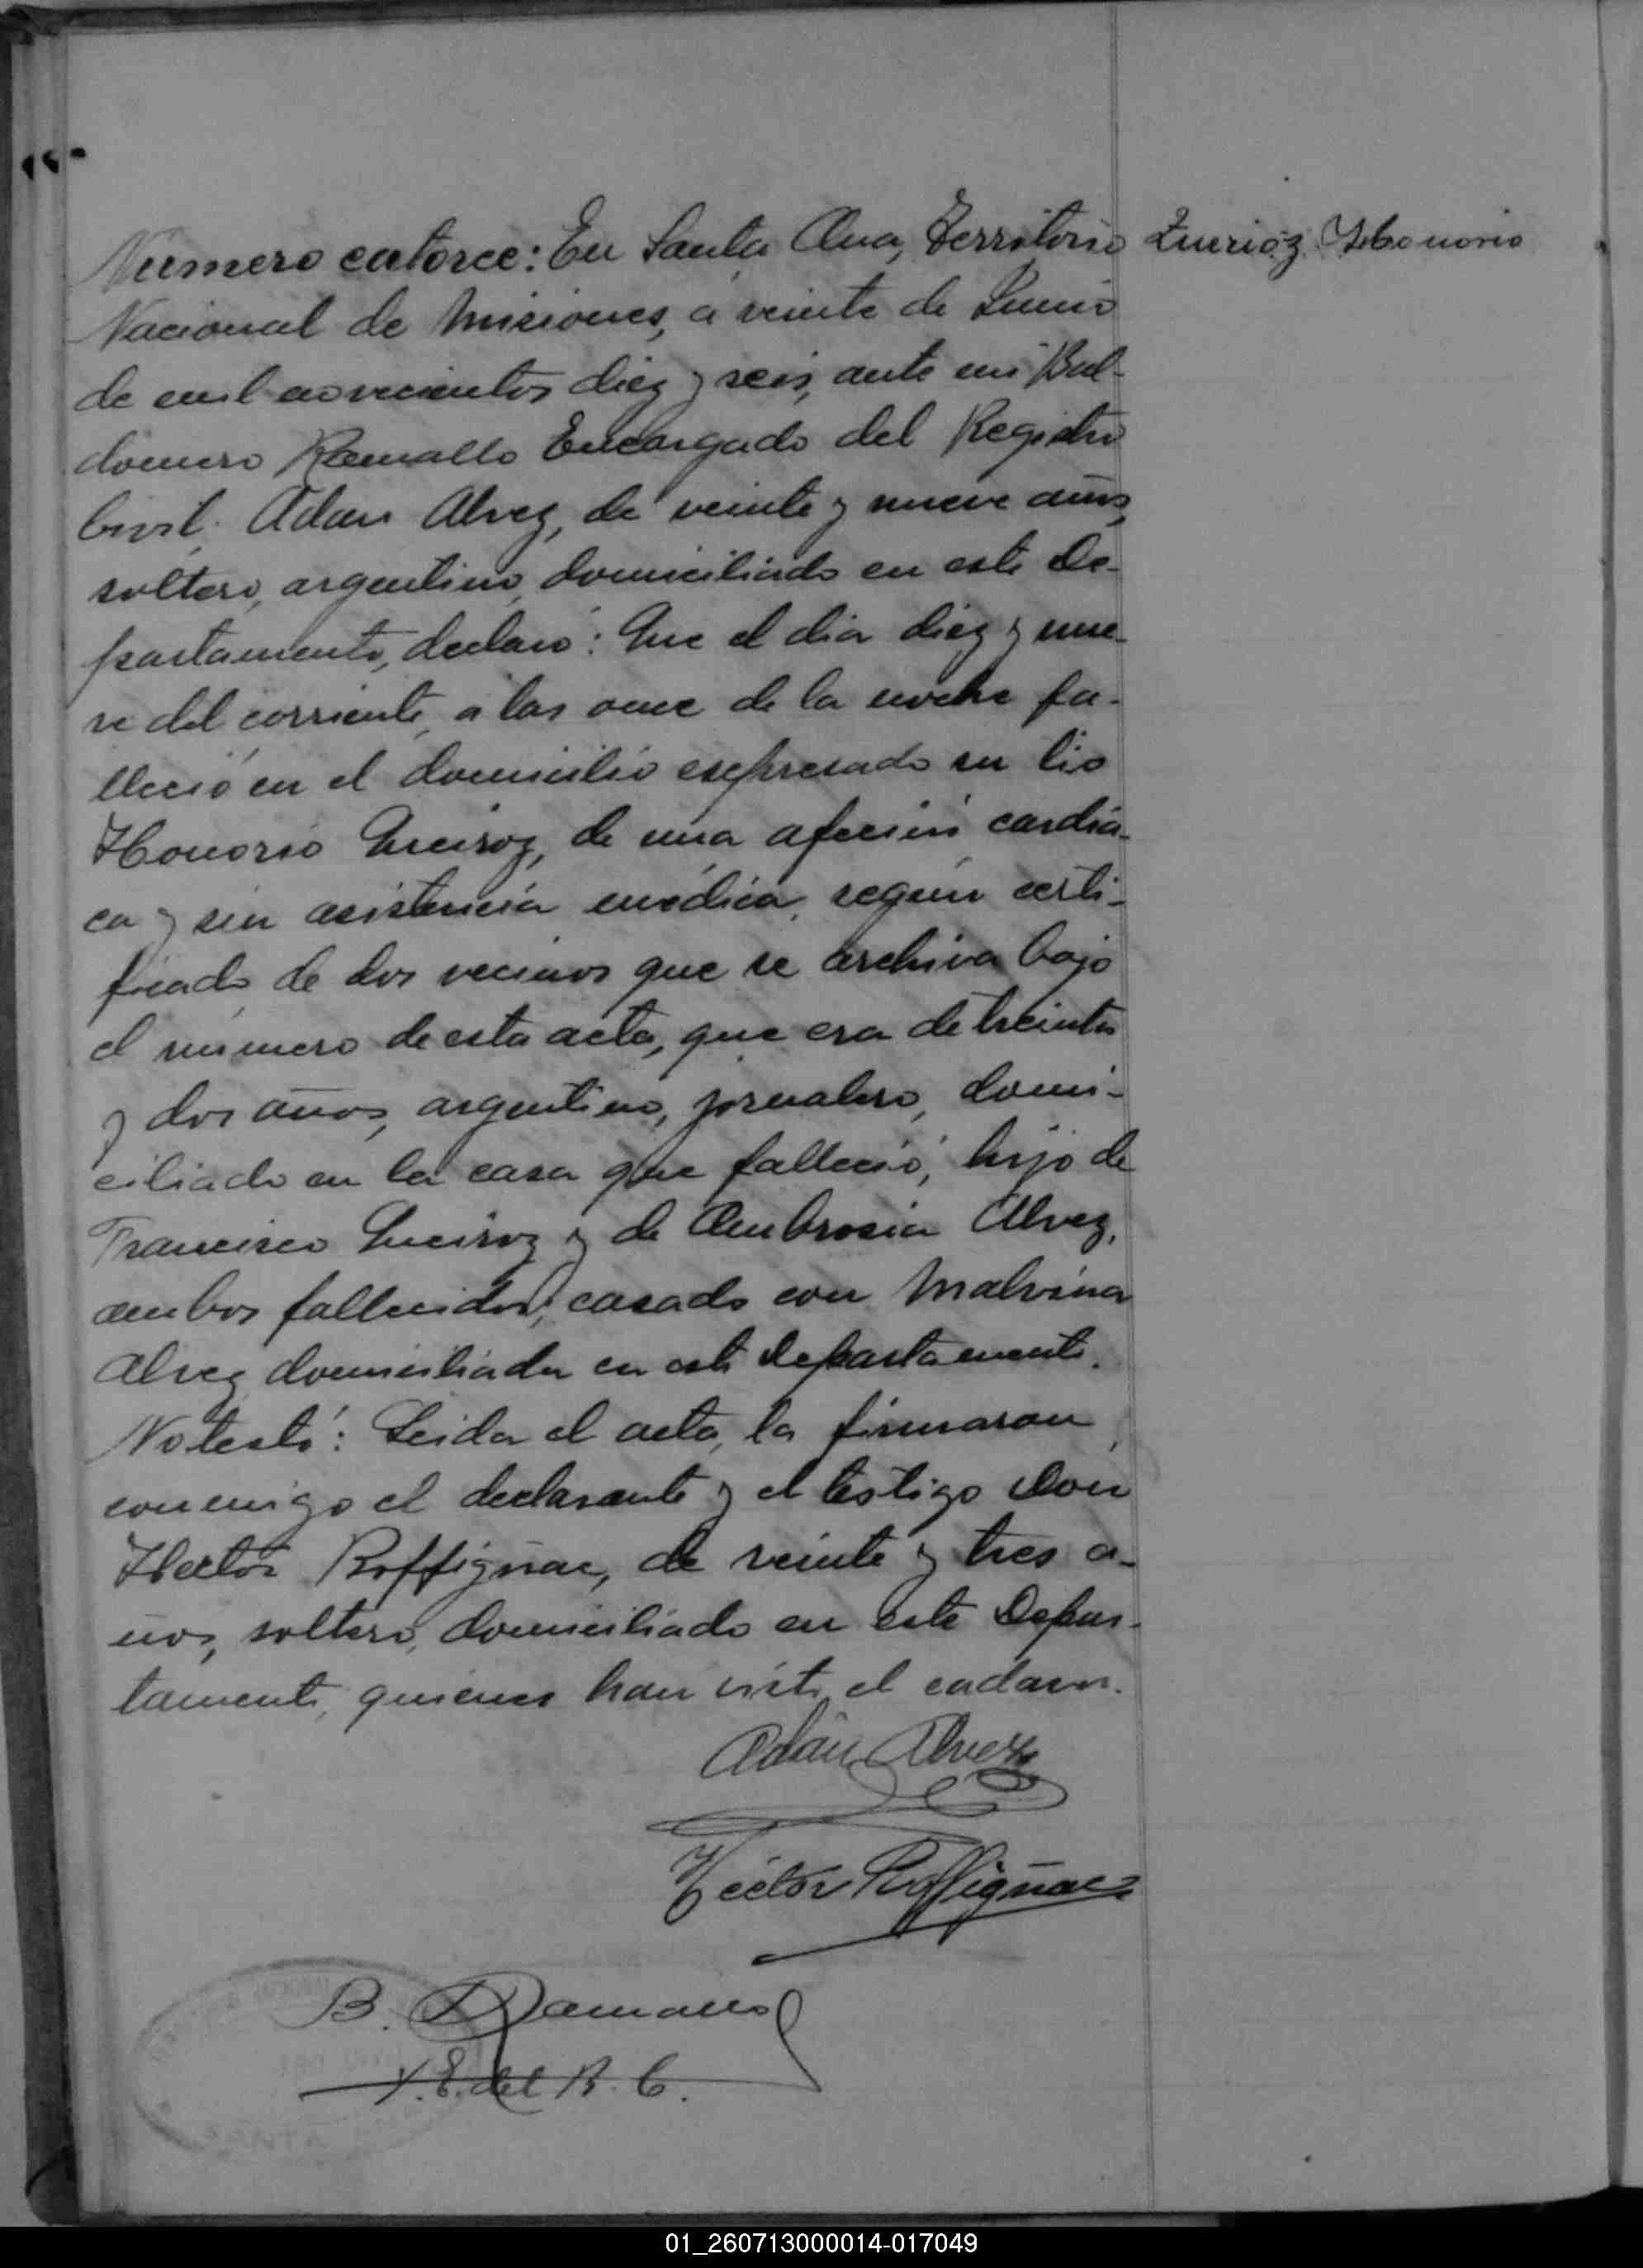 Número catorce: En Santa Ana, Territorio
Queiróz Honorio
Nacional de Misiones, a veinte de Junio
de mil novecientos diez y seis, ante mi Bal-
domero Ramallo Encargado del Registro
Civil, Adan Alvez, de veinte y nueve años,
soltero, argentino, domiciliado en este De-
partamento, declaró: Que el día diez y nue-
ve del corriente, a las once de la noche fa-
lleció en el domicilio expresado su tío
Honorio Queiroz, de una afección cardía-
ca y sin asistencia médica, según certi-
ficado de dos vecinos que se archiva bajo
el número de esta acta, que era de treinta
y dos años, argentino, jornalero, domi-
ciliado en la casa que falleció, hijo de
Francisco Queiroz y de Ambrosia Alvez,
ambos fallecidos; casado con Malvina
Alvez domiciliada en este Departamento.
No testó: Leida el acta, la firmaron
conmigo el declarante y el testigo Don
Hector Roffignac, de veinte y tres a-
ños, soltero, domiciliado en este Depar-
tamento, quienes han visto el cadaver.
Adán Alvez
Héctor Roffignac
B. Ramallo
E. del R. C.
01_260713000014-017049